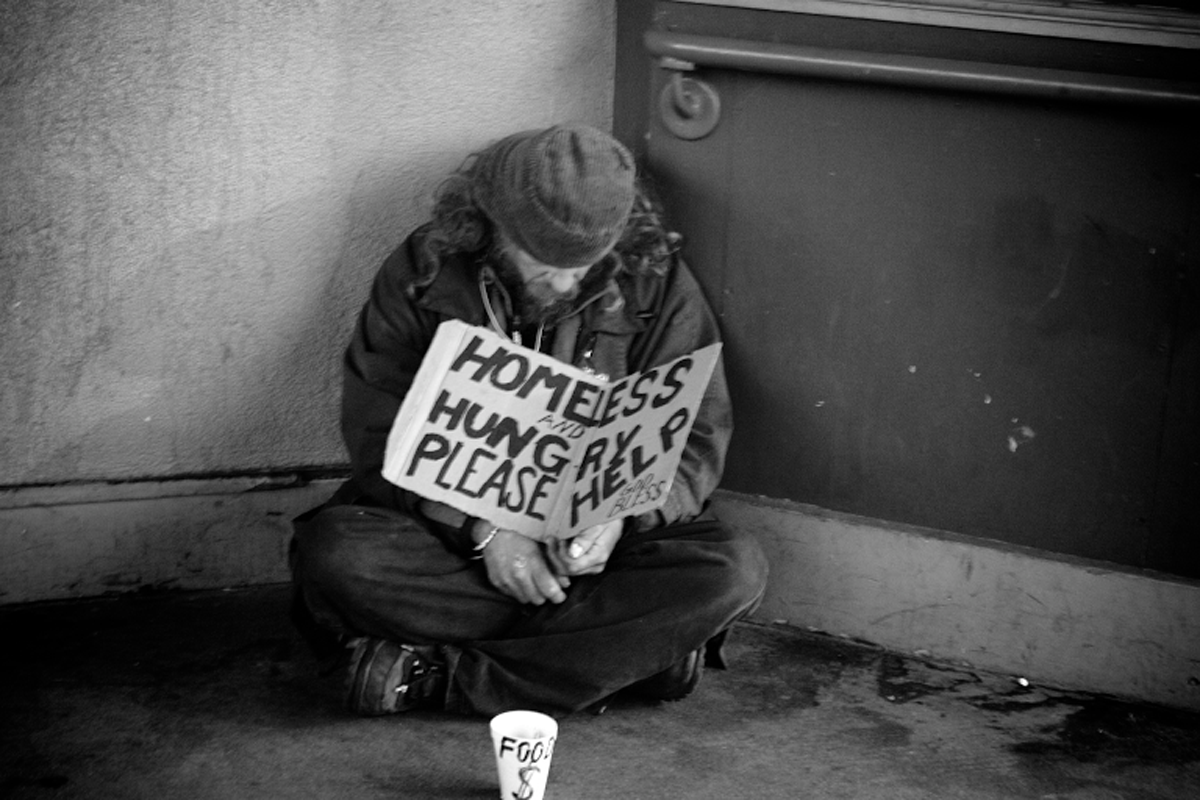 HOMELESS
AND
HUNGRY
PLEASE HELP
GOD
BLESS
FOOD
$